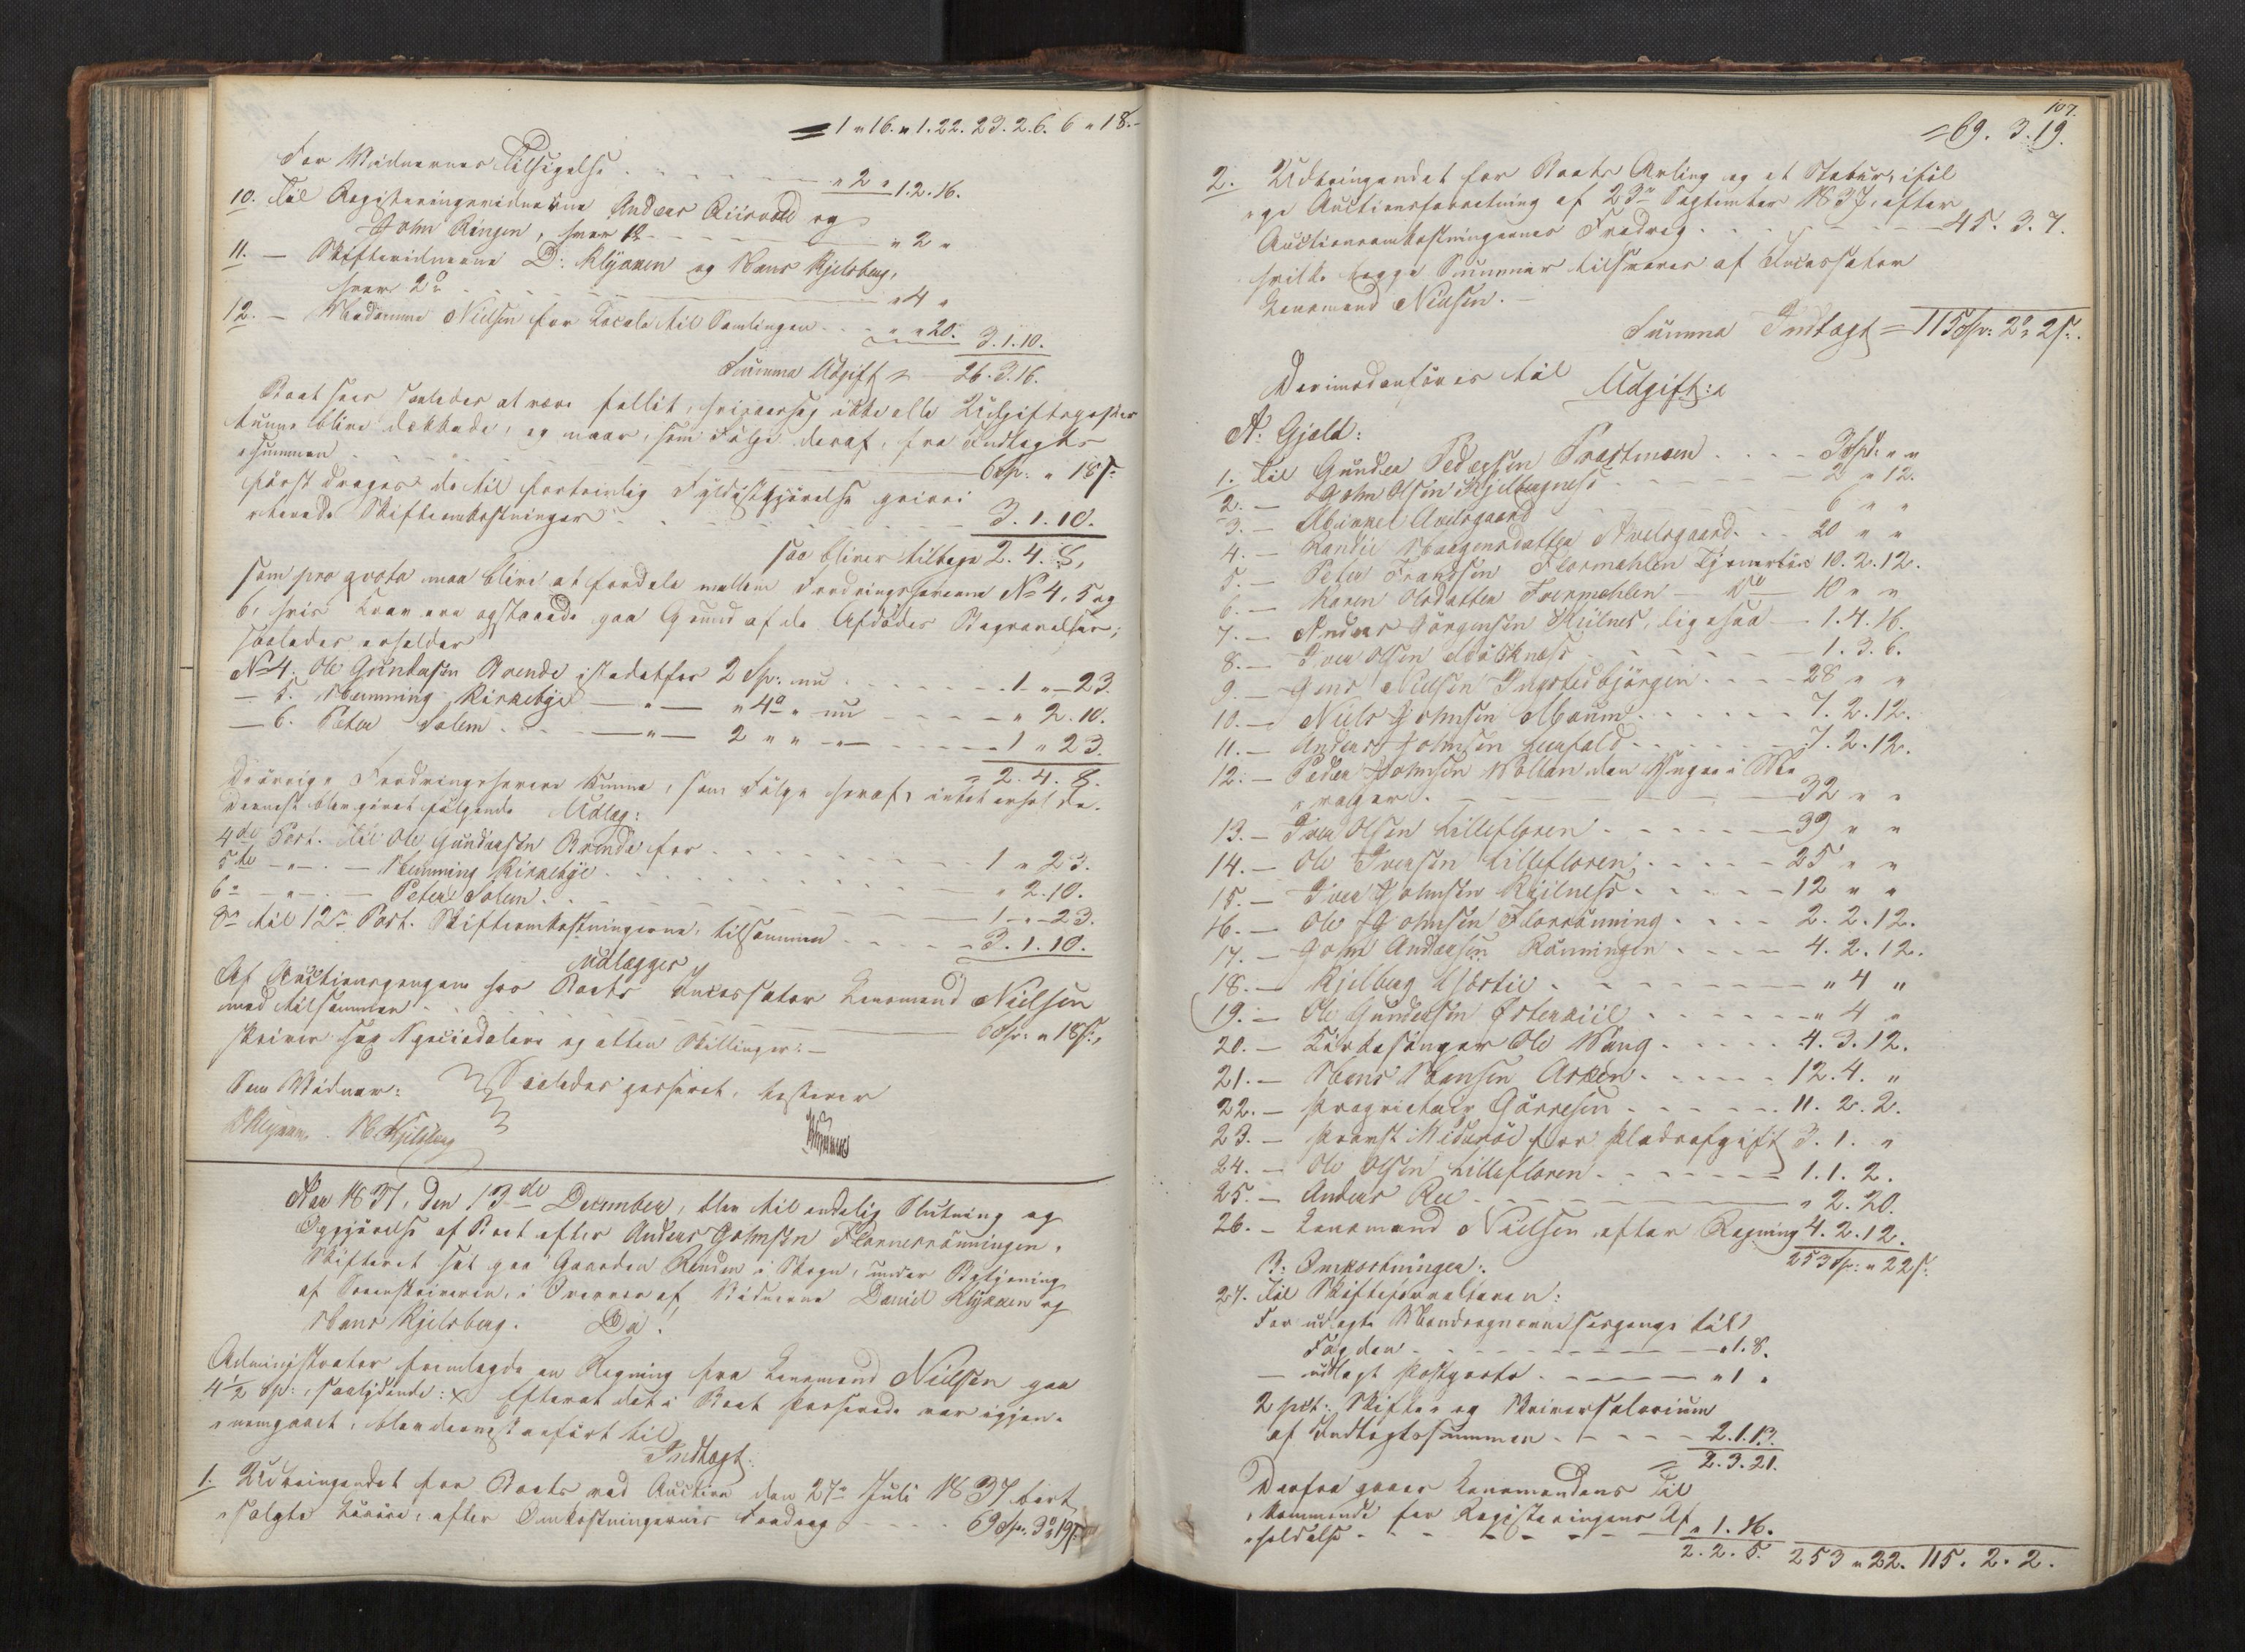 = 1 " 16. " 1. 22. 23. 2. 6. 6 " 18.-
For Vidnernes Tilsigelse " 2 " 1. 2. 16.
10. Til Registeringsvidnerne Anders Riisvold og
John Ringen, hver 12 " 2 "
11. — Skiftevidnerne D: Klykken og Hans Kjelsberg,
hver 2 " 4 "
12. — Madamme Nielsen for Locale til Samlingen " " 20. 3. 1. 10.
Summa Udgift = 26. 3. 16.
Boet sees saaledes at være fallit, hvorvel ikke alle Udgiftsposter
kunne blive dækkede, og maa, som Følge deraf, fra Indtægts-
summen 6 Sp: " 18 s:
først drages de til fortrinlig Fyldestgjørelse
Skifteomkostninger 3. 1. 10.
saa bliver tilbage 2. 4. 8,
som pro qvota maa blive at fordele mellem Fordringshaverne No 4, 5 og
6, hvis Krav ere opstaaede paa Grund af de Afdødes Begravelser;
saaledes erholder
No 4. Ole Gundersen Brende istedetfor 2 Sp: nu 1 " 23.
— 5. Henning Kirkebye — " — " 4 " nu " 2. 10.
— 6. Peter Solem — " — 2 " " — " — 1 " 23.
= 2. 4. 8.
De øvrige Fordringshavere kunne, som Følge heraf, intet erholde.
Dernæst blev gjort følgende Udlæg:
4de Post. Til Ole Gundersen Brende for 1 " 23.
5te — " — — Henning Kirkebye " 2. 10.
6 — " — — Peter Solem 1 " 23.
8de til 12te Post. Skifteomkostningerne, tilsammen 3. 1. 10.
udlægges
Af Auctionspengene hos Boets Incassator Lensmand Nielsen
med tilsammen 6 Sp: " 18 s:,
skriver sex Speciedalere og atten Skillinger. —
Som Vidner: Saaledes passeret, testerer
DKlykken. H. Kjelsberg
Aar 1837, den 13de December, blev til endelig Slutning og
Opgjørelse af Boet efter Anders Johnsen Flornesrønningen,
Skifteret sat paa Gaarden Reinden i Skogn, under Betjening
af Sorenskriveren, i Overvær af Vidnerne Daniel Klykken og
Hans Kjelsberg. Da!
Administrator fremlagde en Regning fra Lensmand Nielsen paa
4½ Sp:, saalydende: x Efterat det i Boet Passerede var igjen-
nemgaaet, blev dernæst anført til
Indtægt:
1. Udbringendet for Boets ved Auction den 27de Juli 1837 bort-
solgte Løsøre, efter Omkostningernes Fradrag 69 Sp: 3 " 19 s:
107.
= 69. 3. 19.
2. Udbringendet for Boets Avling og et Stabur, iføl-
ge Auctionsforretning af 23de September 1837, efter
Auctionsomkostningernes Fradrag 45. 3. 7.
hvilke begge Summer tilsvares af Incassator
Lensmand Nielsen. —
Summa Indtægt = 115 Sp: 2 " 2 s:.
Derimod anføres til Udgift:
A: Gjeld:
1. Til Gunder Pedersen Prastmoen 3 Spd: " "
2. — John Olsen Kjelbergness 2 " 12.
3. — Mikkel Avelsgaard 6 " "
4. — Randie Mogensdatter Avelsgaard 20 " "
5. — Peter Frandsen Flormehlen Tjenerløn 10. 2. 12.
6. — Karen Olsdatter Forrmehlen — Do — 10 " "
7. — Anders Jørgensen Kiilnes, ligesaa — 1. 4. 16.
8. — Iver Olsen 1. 3. 6.
9. — Jens Nielsen Ingstedbjørgen 28 " "
10. — Niels Johnsen Mbaum 7. 2. 12.
11. — Anders Johnsen Leerfald 7. 2. 12.
12. — Peder Johnsen Wollan den Yngre i Mee-
rager 32 " "
13. — Iver Olsen Lillefloren 39 " "
14. — Ole Iversen Lillefloren 25 " "
15. — Iver Johnsen Kiilness 12 " "
16. — Ole Johnsen Florrønning 2. 2. 12.
17. — John Andersen Rønningen 4. 2. 12.
18. — Kjelberg " 4 "
19. — Ole Gundersen Østerkiil " 4 "
20. — Kirkesanger Ole Wang 4. 3. 12.
21. — Hans Hansen Arken 12. 4. "
22. — Proprietair Gørresen 11. 2. 2.
23. — Provst Widerøe for Pladsafgift 3. 1. "
24. — Ole Olsen Lillefloren 1. 1. 2.
25. — Anders Ree " 2. 20.
26. — Lensmand Nielsen efter Regning 4. 2. 12.
253 Sp: " 22 s:
B: Omkostninger:
27. Til Skifteforvalteren:
For udlagte til
Fogden " 1. 8.
— udlagt Postporto " 1 "
2 pct: Skifte- og Skriversalarium
af Indtægtssummen 2. 1. 13.
= 2. 3. 21.
Derfra gaaer Lensmandens Til-
kommende for Registeringens Af-
holdelse " 1. 16.
2. 2. 5. 253 " 22. 115. 2. 2.